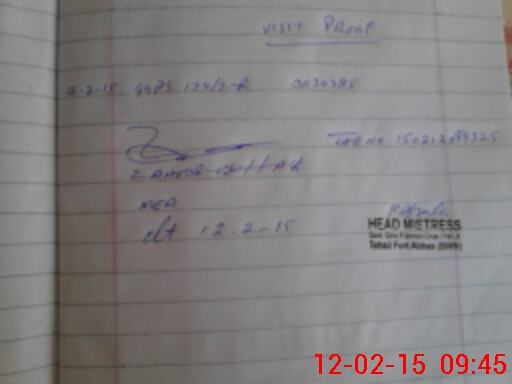 VISIT PROOF
12-2-15. GGPS 174/7-R 3130385
TAB NO. 150212099325
ZAHOOR-
MEA
dt 12.2-15
HEAD MISTRESS
Tehsil Fort Abbas (BWN)
12-02-15 09:45